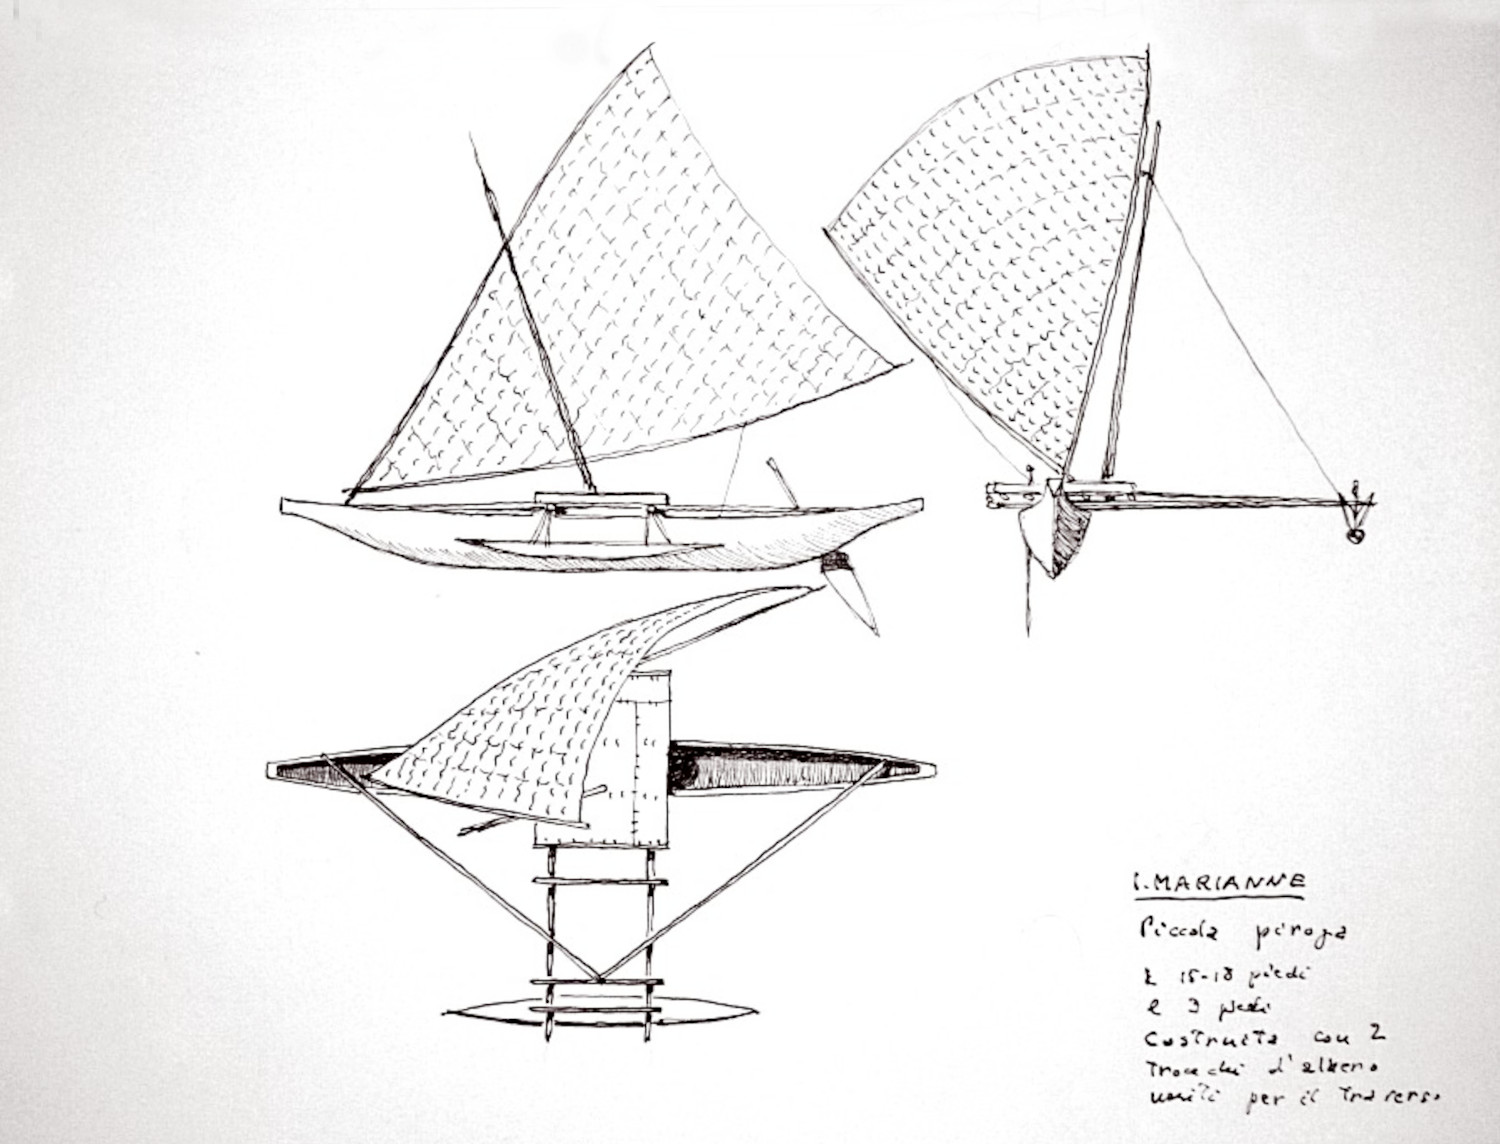 I. MARIANNE
Piccola piroga
L 15-18 piedi
l 3 piedi
Costruita con 2
tronchi d'albero
uniti per il traverso